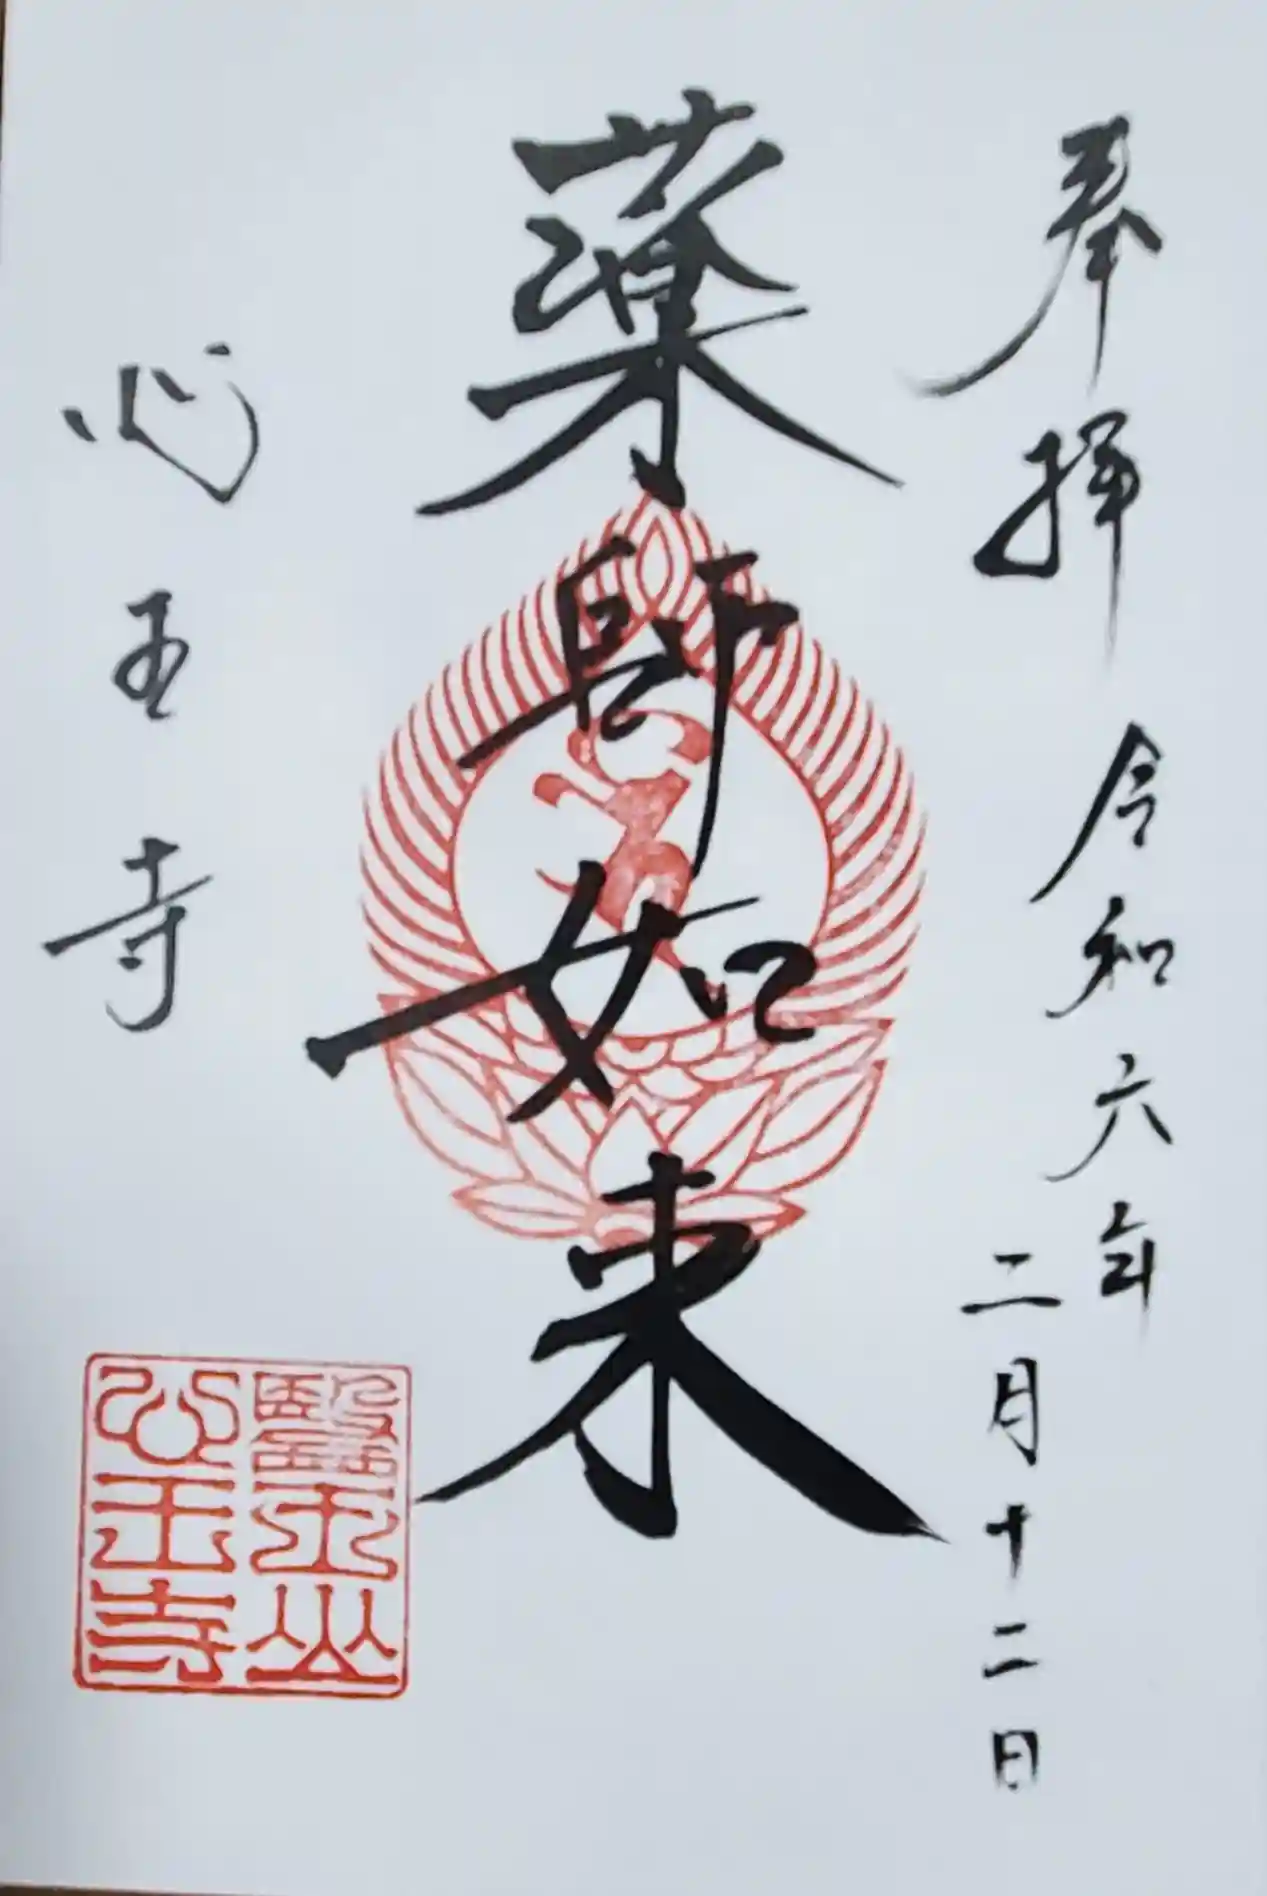 奉拝 令和六年
二月十二日
薬師如来
心王寺
醫王山
心王寺